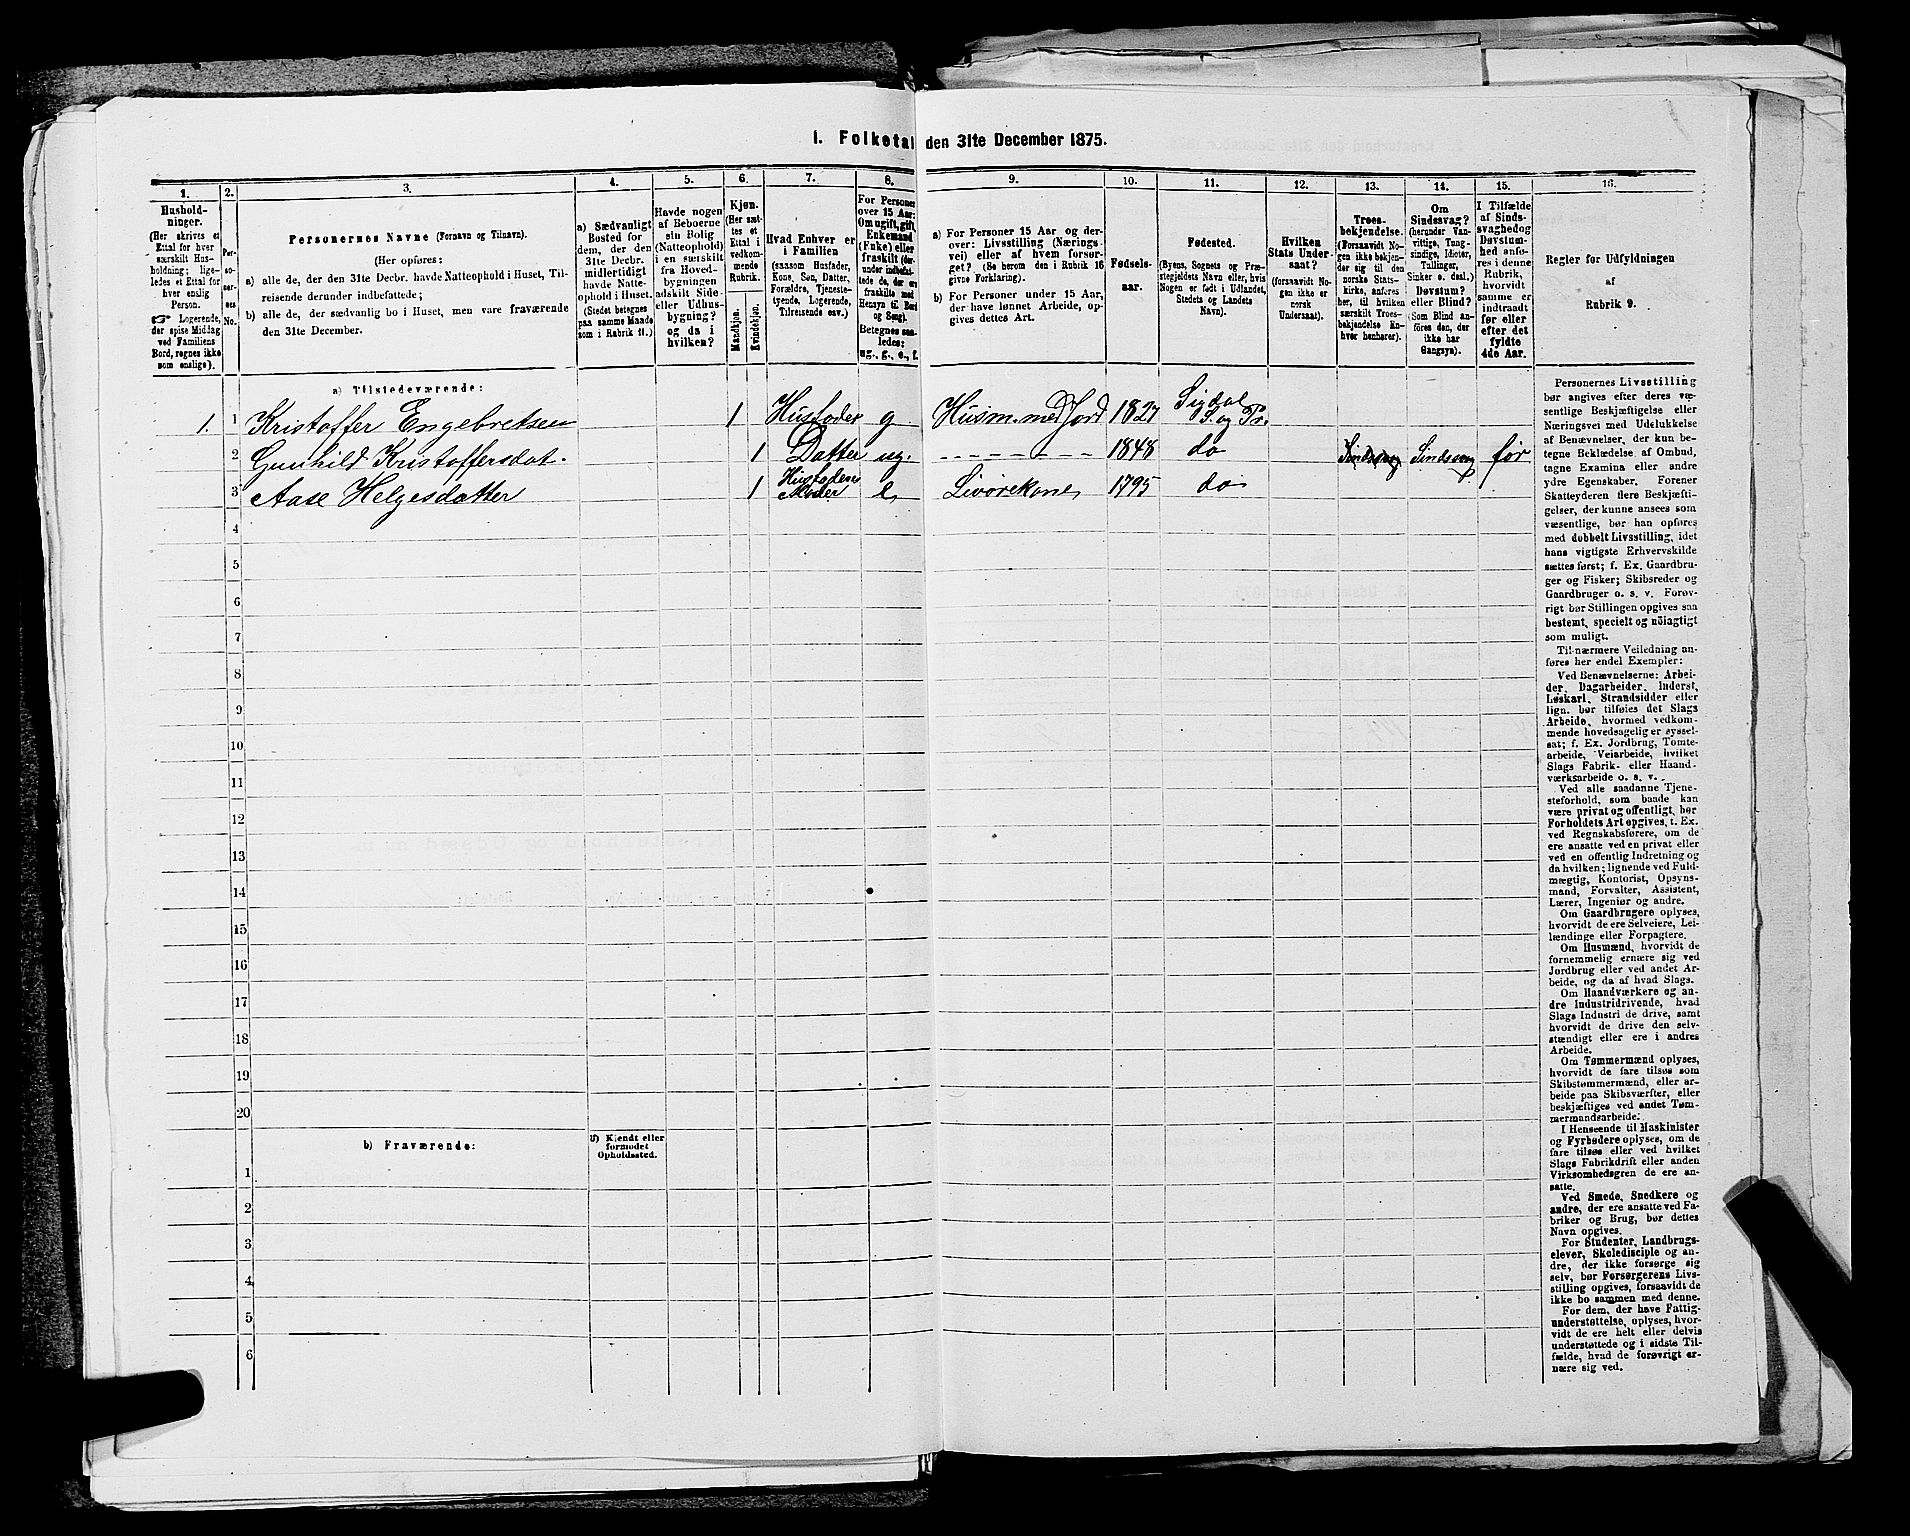 1. Folketal den 31te December 1875.
1.
2.
3.
4.
5.
6.
7.
8.
9.
10.
11.
12.
13.
14.
15.
16.
Husholdninger.
(Her skrives et
Ettal for hver
særskilt Husholdning;
ligeledes et Ettal for
hver enslig
Person.
☞ Logerende,
der spise Middag
ved Familiens
Bord, regnes ikke
som enslige).
Personernes No.
Personernes Navne (Fornavn og Tilnavn).
(Her opføres:
a) alle de, der den 31te Decbr. havde Natteophold i Huset, Tilreisende derunder indbefattede;
b) alle de, der sædvanlig bo i Huset, men vare fraværende
den 31te December.
a) Sædvanligt
Bosted for
dem, der den
31te Decbr.
midlertidigt
havde Natteophold i Huset.
(Stedet betegnes
paa samme Maade
som i Rubrik 11.)
Havde nogen
af Beboerne
sin Bolig
(Natteophold)
i en særskilt
fra Hovedbygningen
adskilt Side-
eller Udhusbygning?
og da i
hvilken?
Kjøn.
(Her sættes et
Ettal i
vedkommende
Rubrik.
Mandkjøn.
Kvindekjøn.
Hvad Enhver er
i Familien
(saasom Husfader,
Kone, Søn, Datter,
Forældre, Tjenestetyende, Logerende,
Tilreisende osv.)
For Personer
over 15 Aar:
Om ugift, gift,
Enkemand
(Enke) eller
fraskilt (derunder indbefattede de, der ere
fraskilte med
Hensyn til Bord
og Seng).
Betegnes saaledes:
ug., g., e., f.
a) For Personer 15 Aar og derover: Livsstilling (Næringsvei) eller af hvem forsørget? (Se herom den i Rubrik 16
givne Forklaring).
b) For Personer under 15 Aar,
der have lønnet Arbeide, opgives dettes Art.
Fødselsaar.
Fødested.
(Byens, Sognets og Præstegjeldets Navn eller, hvis
Nogen er født i Udlandet,
Stedets og Landets
Navn).
Hvilken
Stats Undersaat?
(forsaavidt Nogen ikke er
norsk
Undersaat).
Troesbekjendelse.
(Forsaavidt Nogen ikke bekjender sig til den
norske Statskirke, anføres
her, til hvilken
særskilt Troesbekjendelse Enhver henhører).
Om
Sindssvag?
(herunder Vanvittige, Tungsindige, Idioter,
Tullinger,
Sinker o. desl.)
Døvstum?
eller Blind?
(Som Blind anføres den, der
ikke har
Gangsyn).
I Tilfælde
af Sindssvaghed og
Døvstumhed anføres i denne
Rubrik,
hvorvidt
samme er
indtraadt
før eller
efter det
fyldte
4de Aar.
Regler for Udfyldningen
af
Rubrik 9.
a) Tilstedeværende:
1. 1 Kristoffer Engebretsen 1 Husfader g Husm. med Jord 1827 Sigdal S. og Pr.
2 Gunhild Kristoffersdat. 1 Datter ug. - - - - - - 1848 do Sindssvag Sindssvag før
3 Aase Helgesdatter 1 Husfaderens Moder e Livørekone 1795 do
4
5
6
7
8
9
10
11
12
13
14
15
16
17
18
19
20
b) Fraværende:
b) Kjendt eller
formodet
Opholdssted.
1
2
3
4
5
6
Personernes Livsstilling
bør angives efter deres væsentlige Beskjæftigelse eller
Næringsvei med Udelukkelse
af Benævnelser, der kun betegne Beklædelse af Ombud,
tagne Examina eller andre
ydre Egenskaber. Forener
Skatteyderen flere Beskjæftigelser, der kunne ansees som
væsentlige, bør han opføres
med dobbelt Livsstilling, idet
hans vigtigste Erhvervskilde
sættes først; f. Ex. Gaardbruger og Fisker; Skibsreder og
Gaardbruger o. s. v. Forøvrigt bør Stillingen opgives saa
bestemt, specielt og nøiagtigt
som muligt.
Til nærmere Veiledning anføres her endel Exempler:
Ved Benævnelserne: Arbeider, Dagarbeider, Inderst,
Løskarl, Strandsidder eller
lign. bør tilføies det Slags
Arbeide, hvormed vedkommende hovedsagelig er sysselsat; f. Ex. Jordbrug, Tomtearbeide, Veiarbeide, hvilket
Slags Fabrik- eller Haandværksarbeide o. s. v.
Ved alle saadanne Tjenesteforhold, som baade kan
være privat og offentligt, bør
Forholdets Art opgives, t. Ex.
ved Regnskabsførere, om de
ere ansatte ved en privat eller
ved en offentlig Indretning og
da hvilken; lignende ved Fuldmægtig, Kontorist, Opsynsmand, Forvalter, Assistent,
Lærer, Ingeniør og andre.
Om Gaardbrugere oplyses,
hvorvidt de ere Selveiere, Leilændinge eller Forpagtere.
Om Husmænd, hvorvidt de
fornemmelig ernære sig ved
Jordbrug eller ved andet Arbeide, og da af hvad Slags.
Om Haandværkere og andre Industridrivende, hvad
Slags Industri de drive, samt
hvorvidt de drive den selvstændigt eller ere i andres
Arbeide.
Om Tømmermænd oplyses,
hvorvidt de fare tilsøs som
Skibstømmermænd, eller arbeide paa Skibsværfter, eller
beskjæftiges ved andet Tømmermandsarbeide.
I Henseende til Maskinister
og Fyrbødere oplyses, om de
fare tilsøs eller ved hvilket
Slags Fabrikdrift eller anden
Virksomhedsgren de ere ansatte.
Ved Smede, Snedkere og
andre, der ere ansatte ved Fabriker og Brug, bør dettes
Navn opgives.
For Studenter, Landbrugselever, Skoledisciple og andre, der ikke forsørge sig
selv, bør Forsørgerens Livsstilling opgives, forsaavidt de
ikke bo sammen med denne.
For dem, der have Fattigunderstøttelse, oplyses, hvorvidt de ere helt eller delvis
understøttede og i sidste Tilfælde, hvad de forøvrigt ernære sig ved.